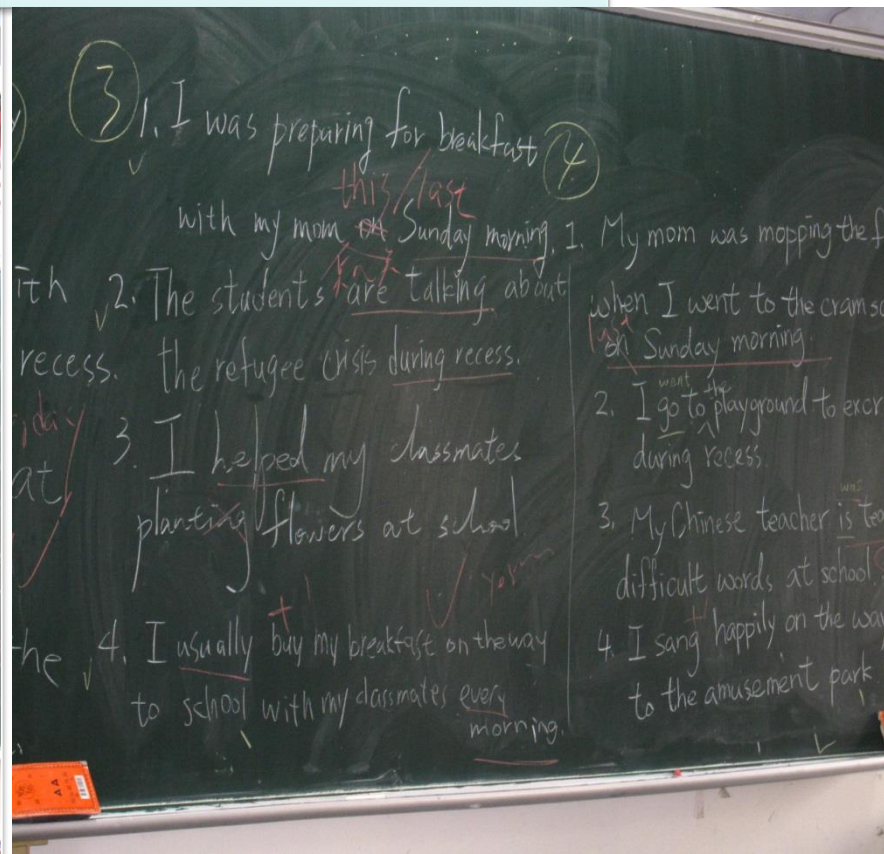 ith
recess.
day
at
the
③
1. I was preparing for breakfast
this/last
with my mom on Sunday morning.
2. The students are talking about
the refugee crisis during recess.
3. I helped my classmates
planting flowers at school.
4. I usually buy my breakfast on the way
to school with my classmates every
morning.
④
1. My mom was mopping the f
when I went to the cram sc
last
on Sunday morning.
went the
2. I go to playground to excr
during recess.
was
3. My Chinese teacher is tea
difficult words at school
4. I sang happily on the wa
to the amusement park